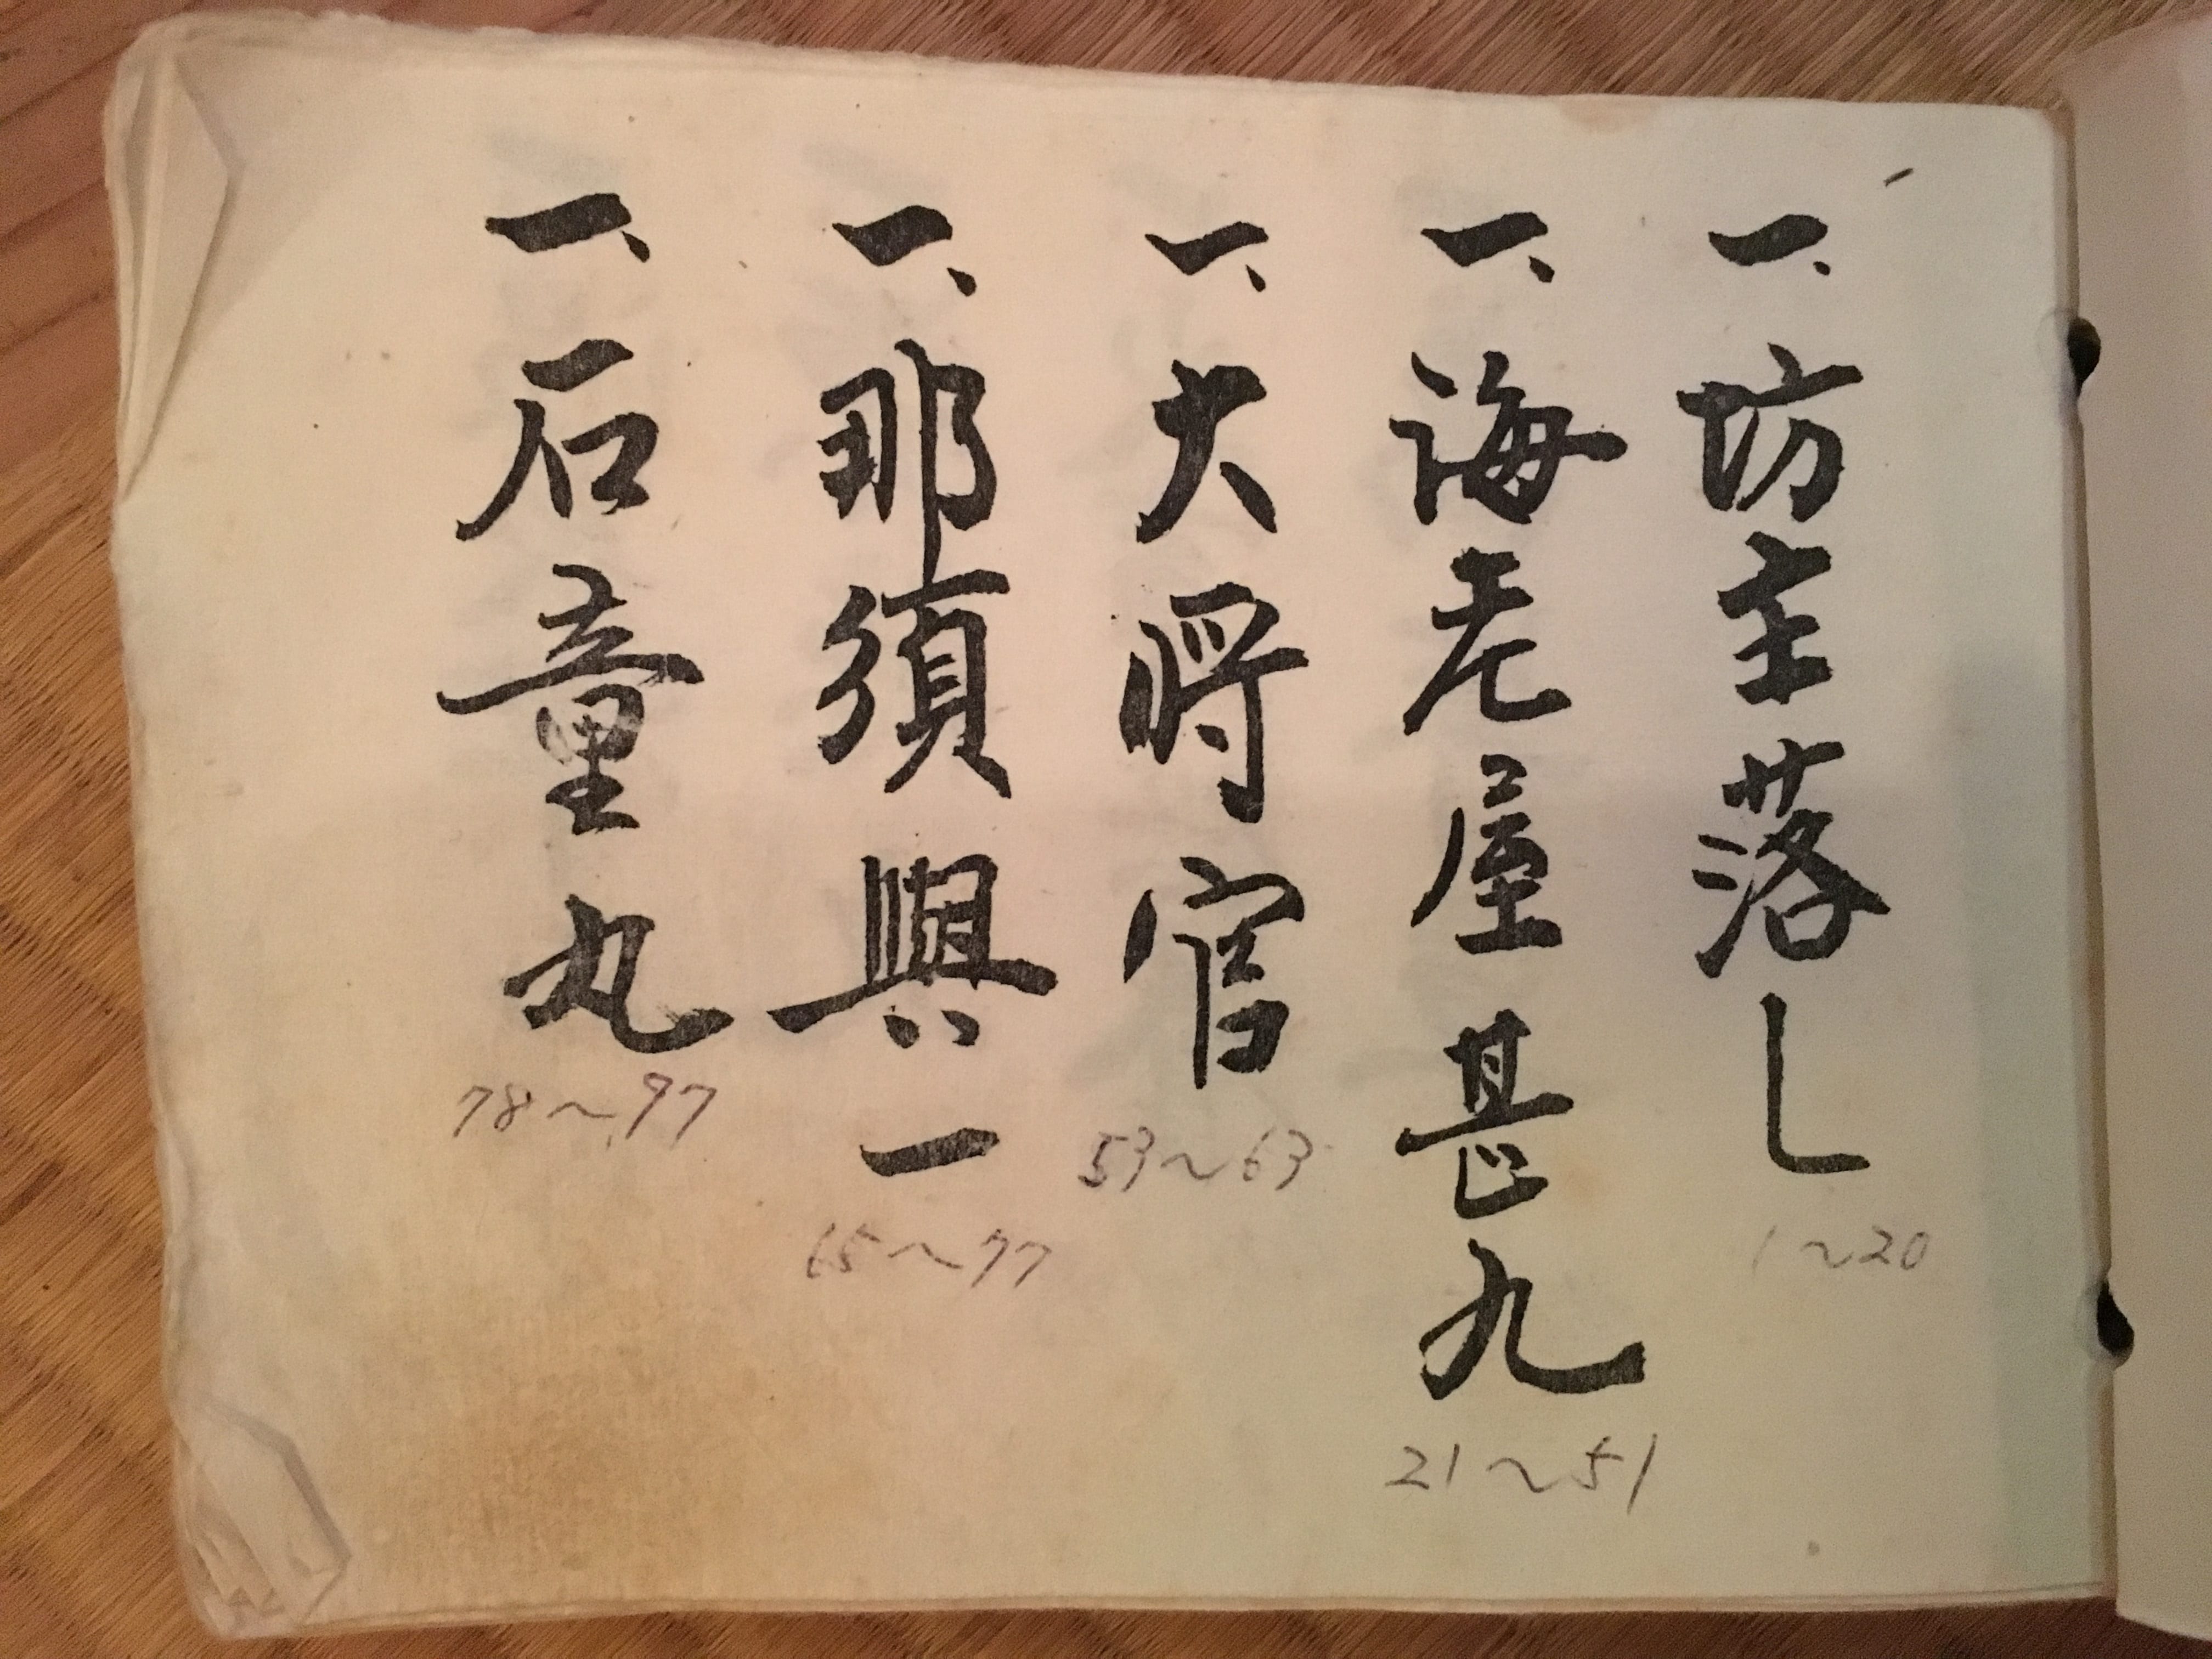 一、坊主落し
1～20
一、海老屋甚九
21～51
一、大将官
53～63
一、那須與一
65～77
一、石童丸
78～97